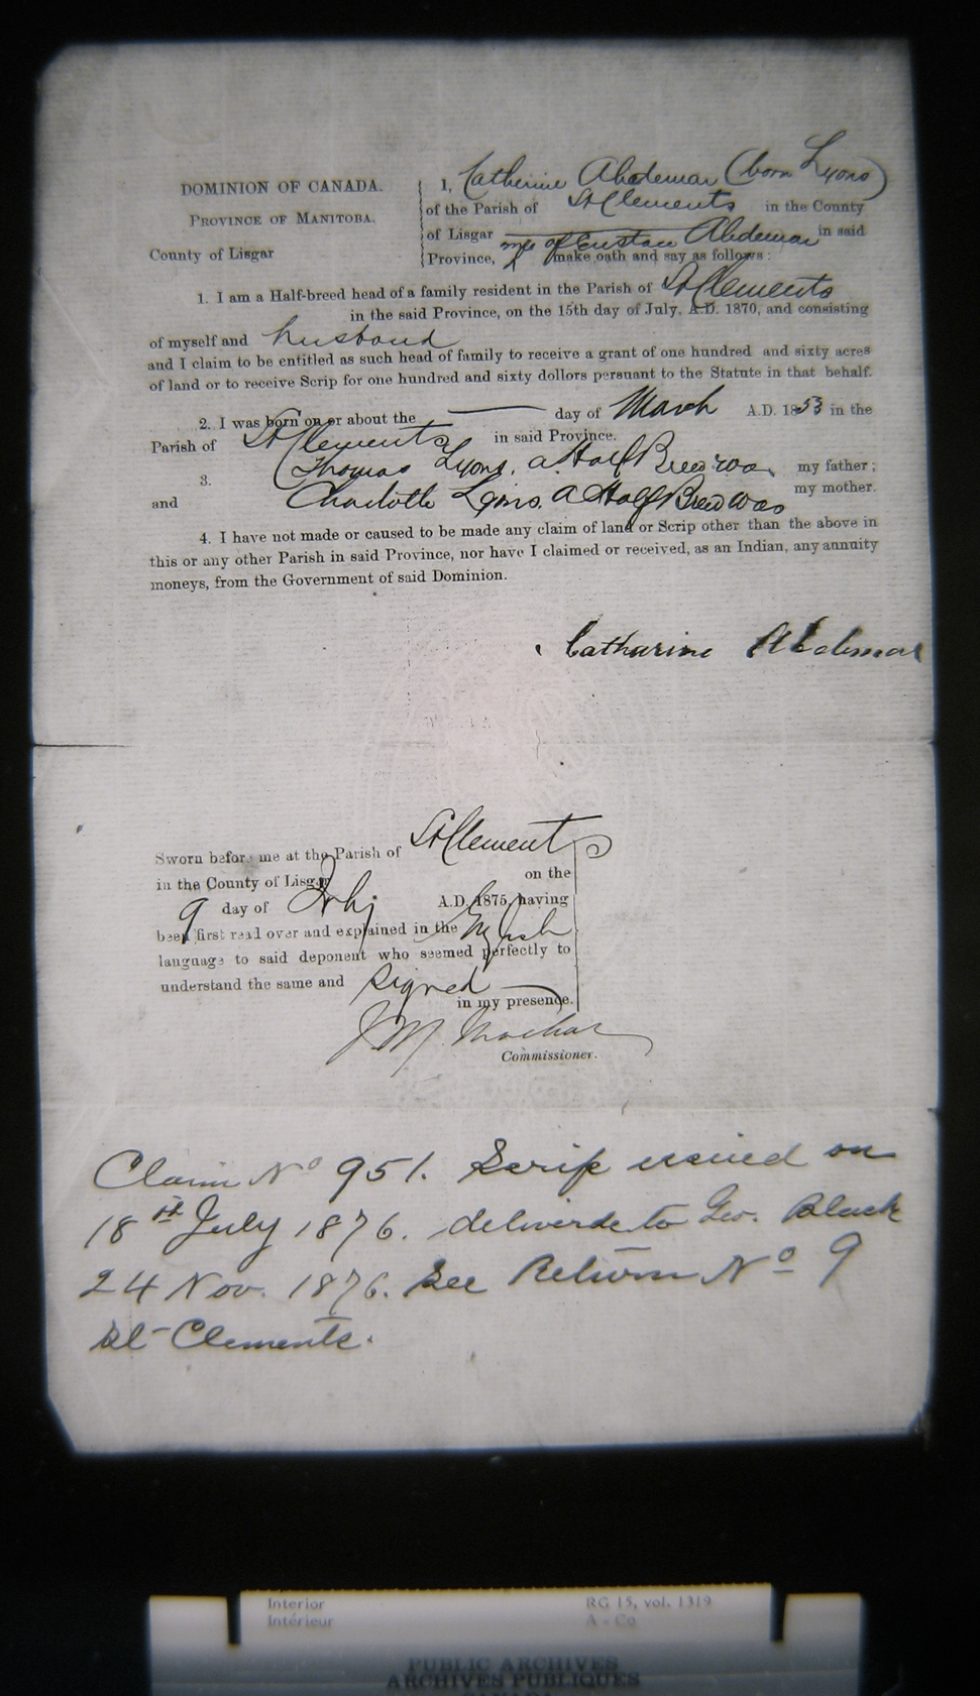 DOMINION OF CANADA.
PROVINCE OF MANITOBA.
County of Lisgar
I, Catherine Abdemar (born Lyons)
of the Parish of St Clements in the County
of Lisgar in said
Province, wife of Abdemar make oath and say as follows:
1. I am a Half-breed head of a family resident in the Parish of St Clements
in the said Province, on the 15th day of July, A.D. 1870, and consisting
of myself and husband
and I claim to be entitled as such head of family to receive a grant of one hundred and sixty acres
of land or to receive Scrip for one hundred and sixty dollars persuant to the Statute in that behalf.
2. I was born on or about the — day of March A.D. 1853 in the
Parish of St Clements in said Province.
3. Thomas Lyons, a Half Breed was my father;
and Charlotte Lyons. a Half Breed was my mother.
4. I have not made or caused to be made any claim of land or Scrip other than the above in
this or any other Parish in said Province, nor have I claimed or received, as an Indian, any annuity
moneys, from the Government of said Dominion.
Catharine Abdemar
Sworn before me at the Parish of St Clements
in the County of Lisgar on the
9 day of July A.D. 1875, having
been first read over and explained in the English
language to said deponent who seemed perfectly to
understand the same and signed
in my presence.
J. M. Machar
Commissioner.
Claim No 951. Scrip issued on
18th July 1876. deliverde to Geo. Black
24 Nov. 1876. See Return No 9
St Clements.
Interior RG 15, vol. 1319
Intérieur A - Co
PUBLIC ARCHIVES
ARCHIVES PUBLIQUES
CANADA